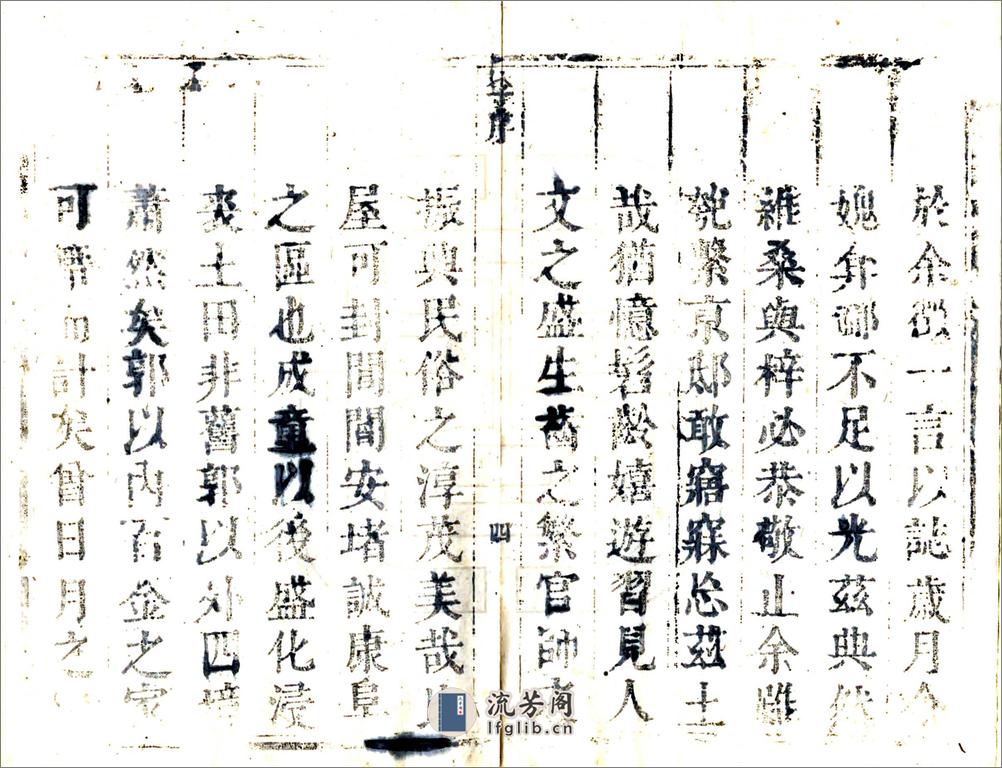 於余徵一言以誌歲月余
媿弇鄙不足以光茲典然
維桑與梓必恭敬止余雖
繫京邸敢寤寐忘茲土
哉猶憶髫齡嬉遊習見人
文之盛生齒之繁官師之
序
四
振典民俗之淳茂美哉
屋可封閭閻安堵誠康阜
之區也成童以後盛化浸
衰土田非舊郭以外四境
蕭然矣郭以內百金之家
可屈而計矣曾日月之
流芳阁
lfglib.cn